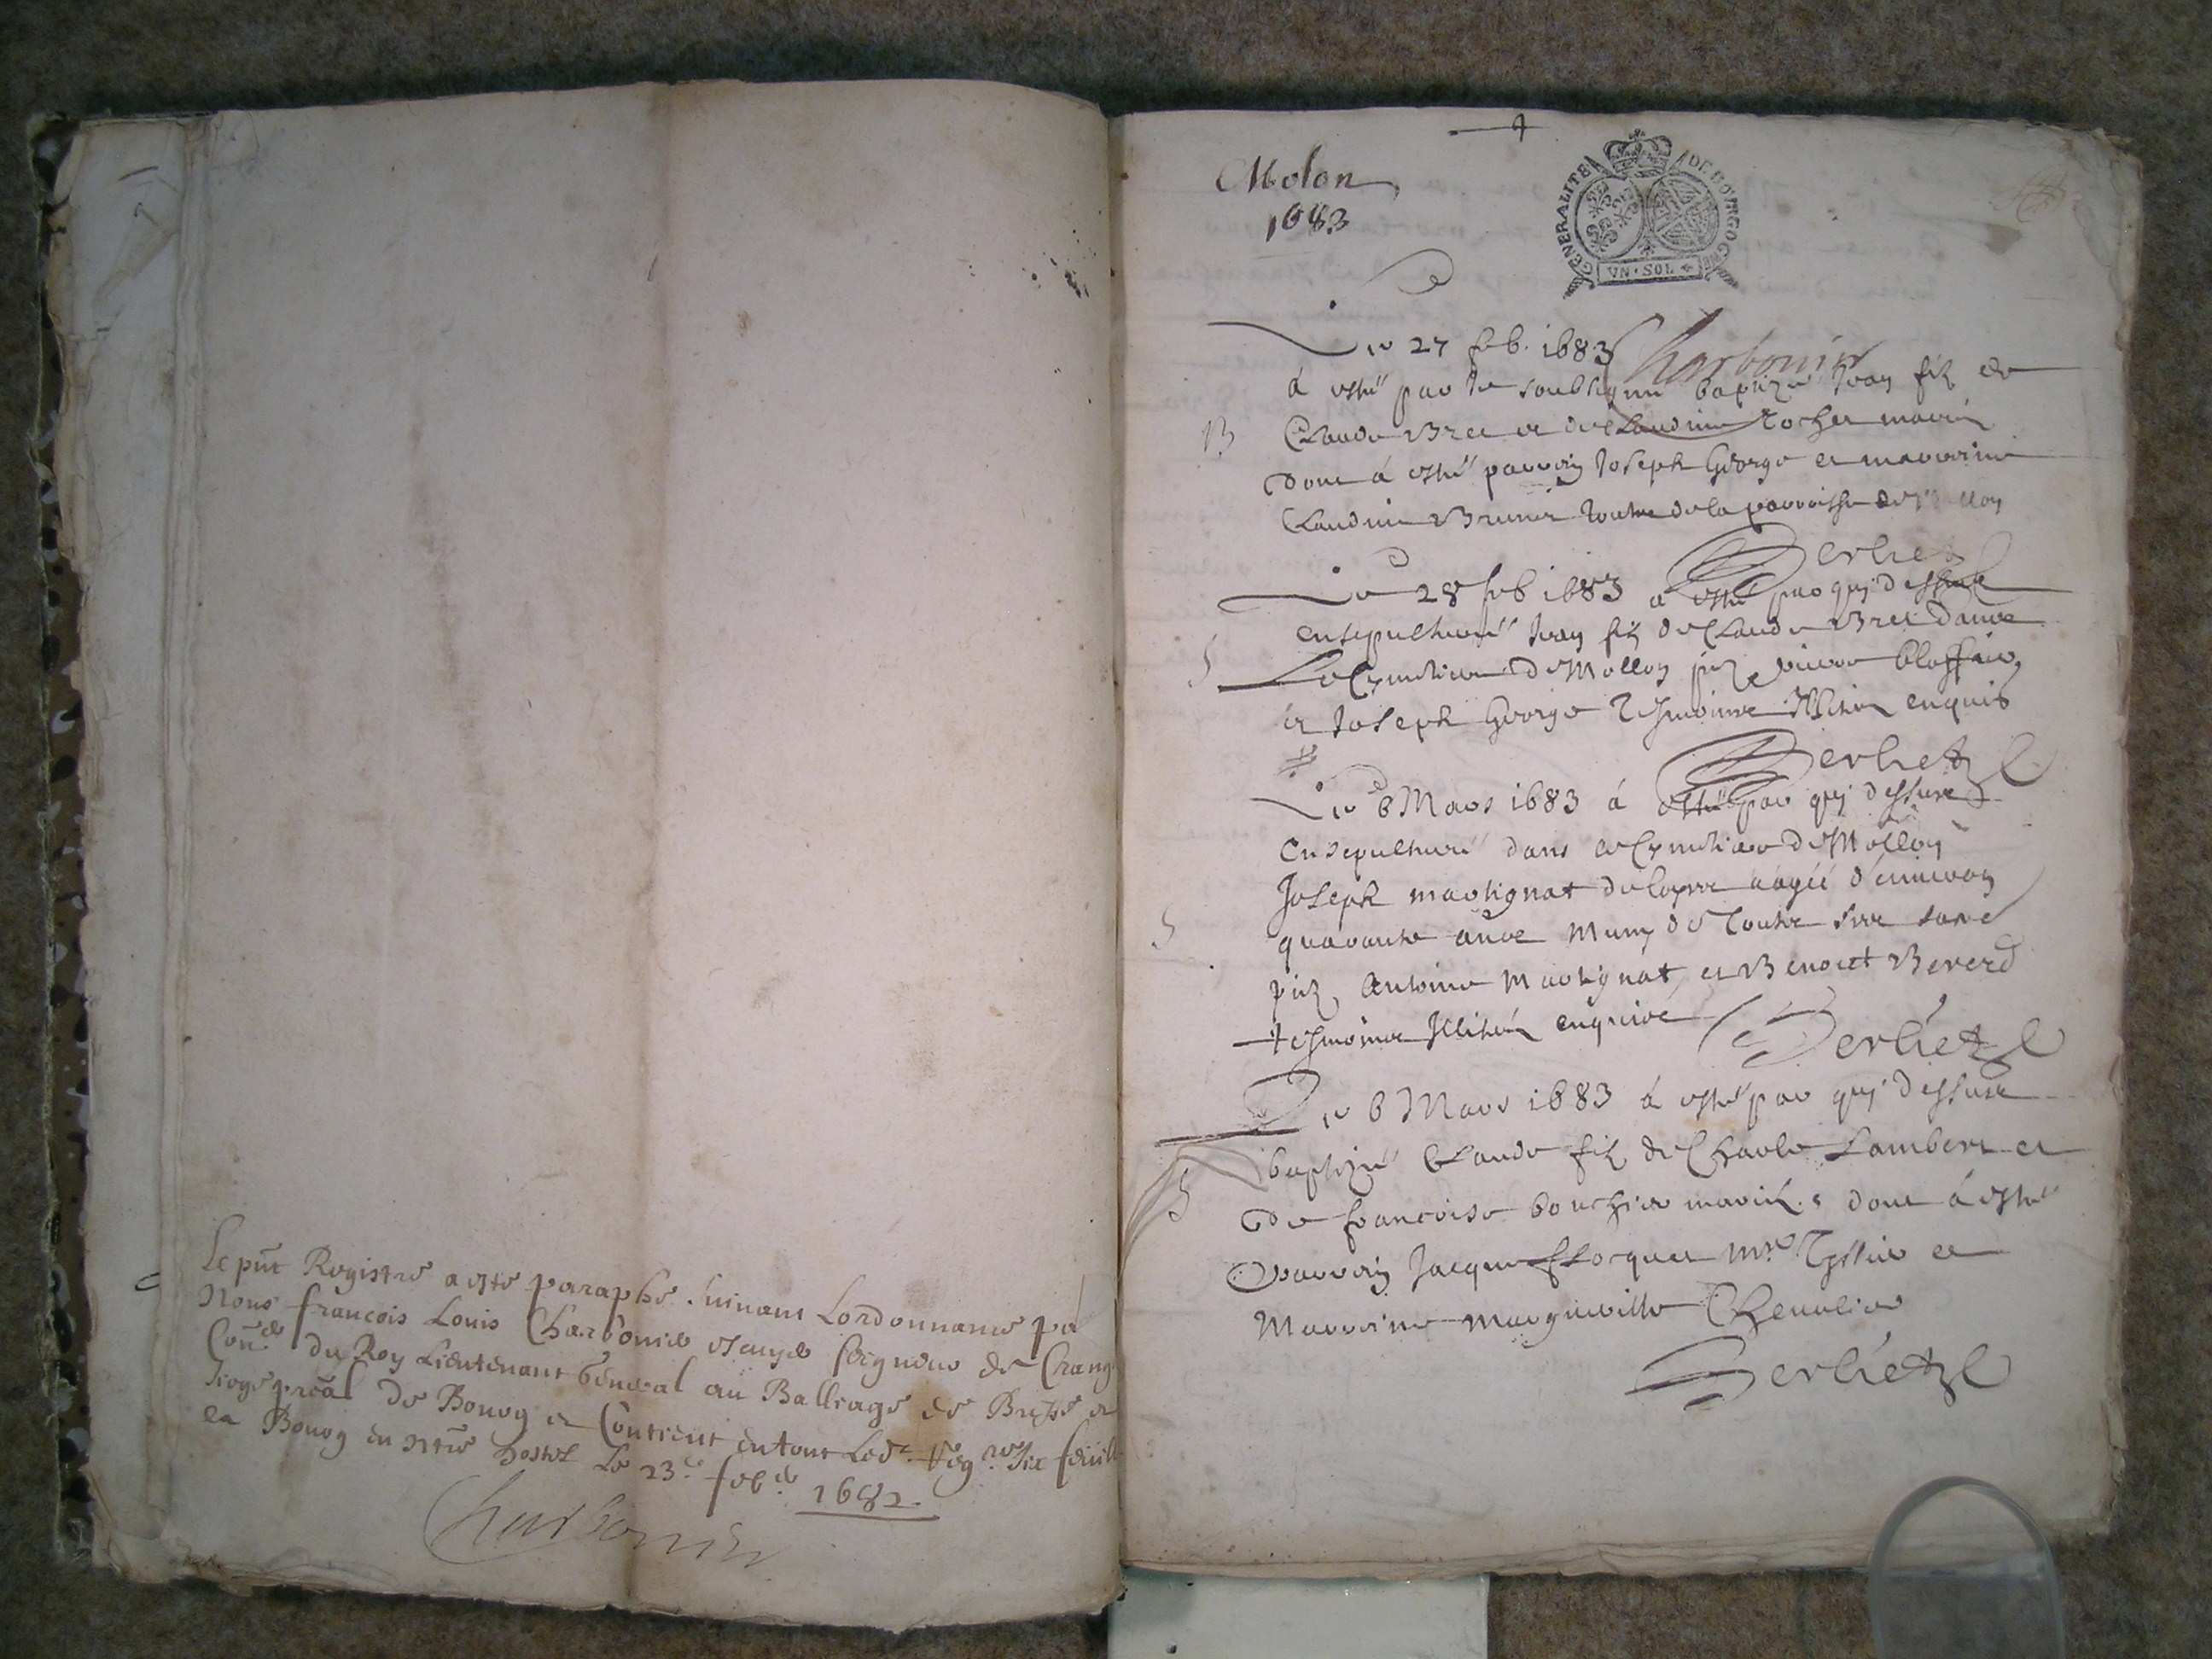 Le pñt Registre a esté paraphé suivant Lordonnance pa
Nous françois Louis Charbonier escuyer seigneur de Crang
Con.er du Roy Lieutenant Géneral au Balliage de Bresse et
siege préal de Bourg et Contient en tout Led. Reg.re six feuill
ea Bourg en ntre hostel Le 23.e feb.er 1682.
Charbonier
Molon
1683
GENERALITE DE BOURGOGNE
VN·SOL
Le 27 feb. 1683 Charbonier
á esté par le soubsigné baptizé Jean filz de
B Claude Bret et de Claudine Rochet mariés
dont á esté parrein Joseph George et marreine
Claudine Brunet touts de la parroisse de Mollon
Berlietz
Le 28 feb 1683 a esté par quj dessus
ensepulturé Jean filz de Claude Bret dans
S Le Cymetiere de Mollon pñz
et Joseph George Tesmoins Illiterés enquis
Berlietz
Le 6 Mars 1683 á esté par quj dessus
Ensepulturé dans le Cymetiere de Mollon
Joseph martignat de aagé d'environ
S quarante ans Muny de Touts
pñz Antoine Martignat et Benoict Bererd
tesmoins Illiterés enquis Berlietz
Le 6 Mars 1683 á esté par quj dessus
B baptizé Claude filz de Charle Lambert et
de francoise bouchier mariés dont á esté
parrein Jacque Floquet M.re Tissier et
Marreine margueritte Chevalier
Berlietz